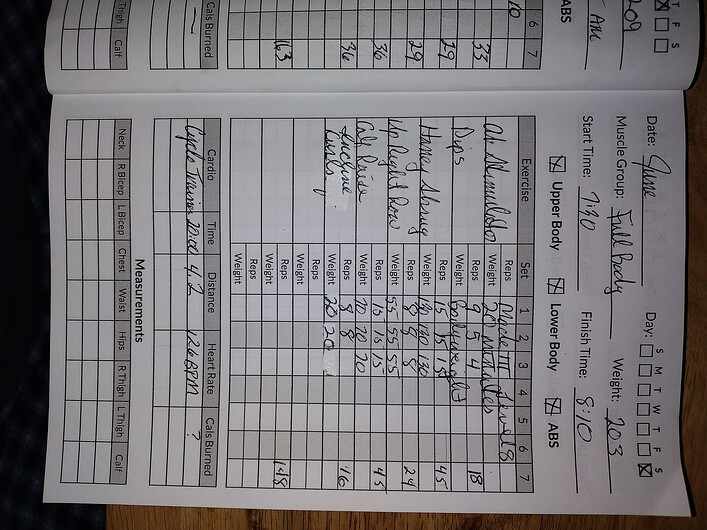 T F S
209
AM
ABS
6 7
10
33
29
29
36
36
163
Cals Burned
—
Thigh Calf
Date: June Day: S M T W T F S
Muscle Group: Full Body Weight: 203
Start Time: 7:30 Finish Time: 8:10
Upper Body Lower Body ABS
Exercise Set 1 2 3 4 5 6 7
Ab Stimulator Reps Mode III Level 8
Weight 20 minutes
Dips Reps 9 5 4 18
Weight Bodyweight
Reps 15 15 15 45
Weight 130 130 130
Reps 8 8 8 24
Up Right Row Weight 55 55 55
Reps 15 15 15 45
Calf Raise Weight 70 70 70
Reps 8 8 16
Incline Weight 20 20
Reps
Weight
Reps 148
Weight
Reps
Weight
Cardio Time Distance Heart Rate Cals Burned
Cyclo Trainer 20:00 4.2 126 BPM ?
Measurements
Neck R Bicep L Bicep Chest Waist Hips R Thigh L Thigh Calf